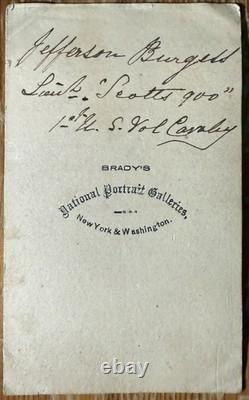 Jefferson Burgess
Lieut. "Scotts 900"
1st U. S. Vol Cavalry
BRADY'S
National Portrait Galleries,
New York & Washington.
ebay
withoutTax